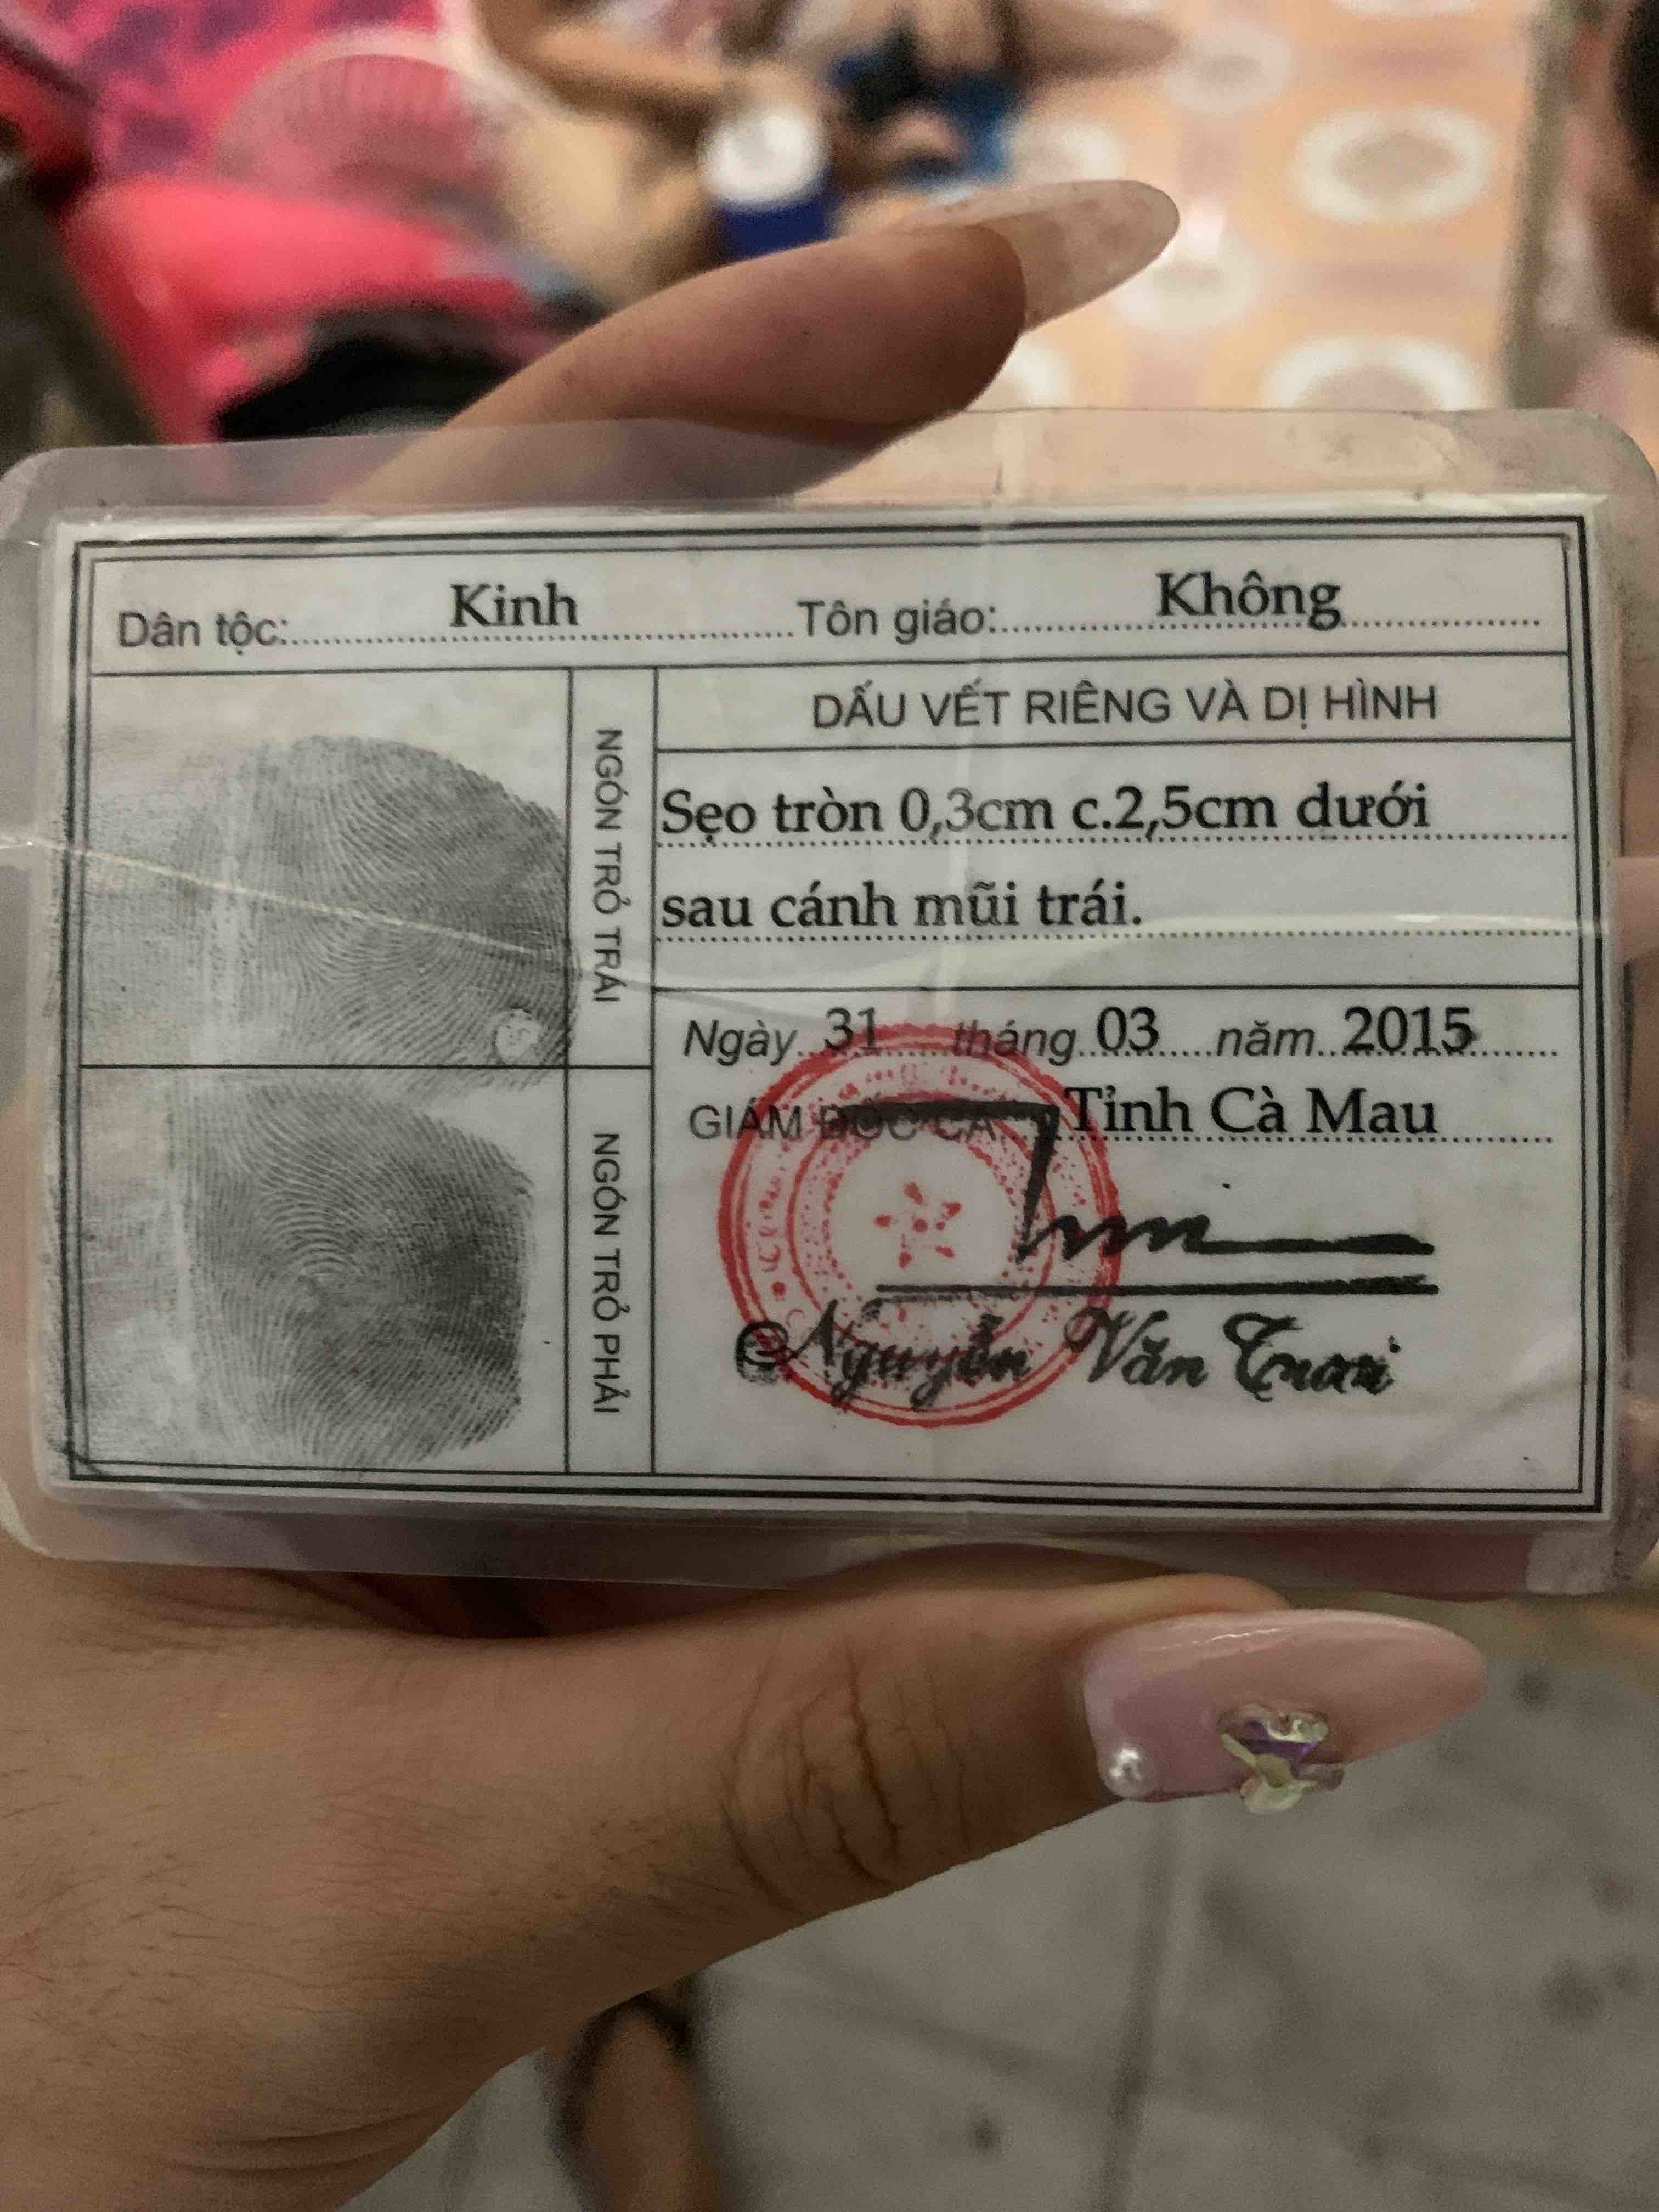 Dân tộc: Kinh Tôn giáo: Không
DẤU VẾT RIÊNG VÀ DỊ HÌNH
NGÓN TRỎ TRÁI
Sẹo tròn 0,3cm c.2,5cm dưới
sau cánh mũi trái.
NGÓN TRỎ PHẢI
Ngày 31 tháng 03 năm 2015
GIÁM ĐỐC CA Tỉnh Cà Mau
Nguyễn Văn